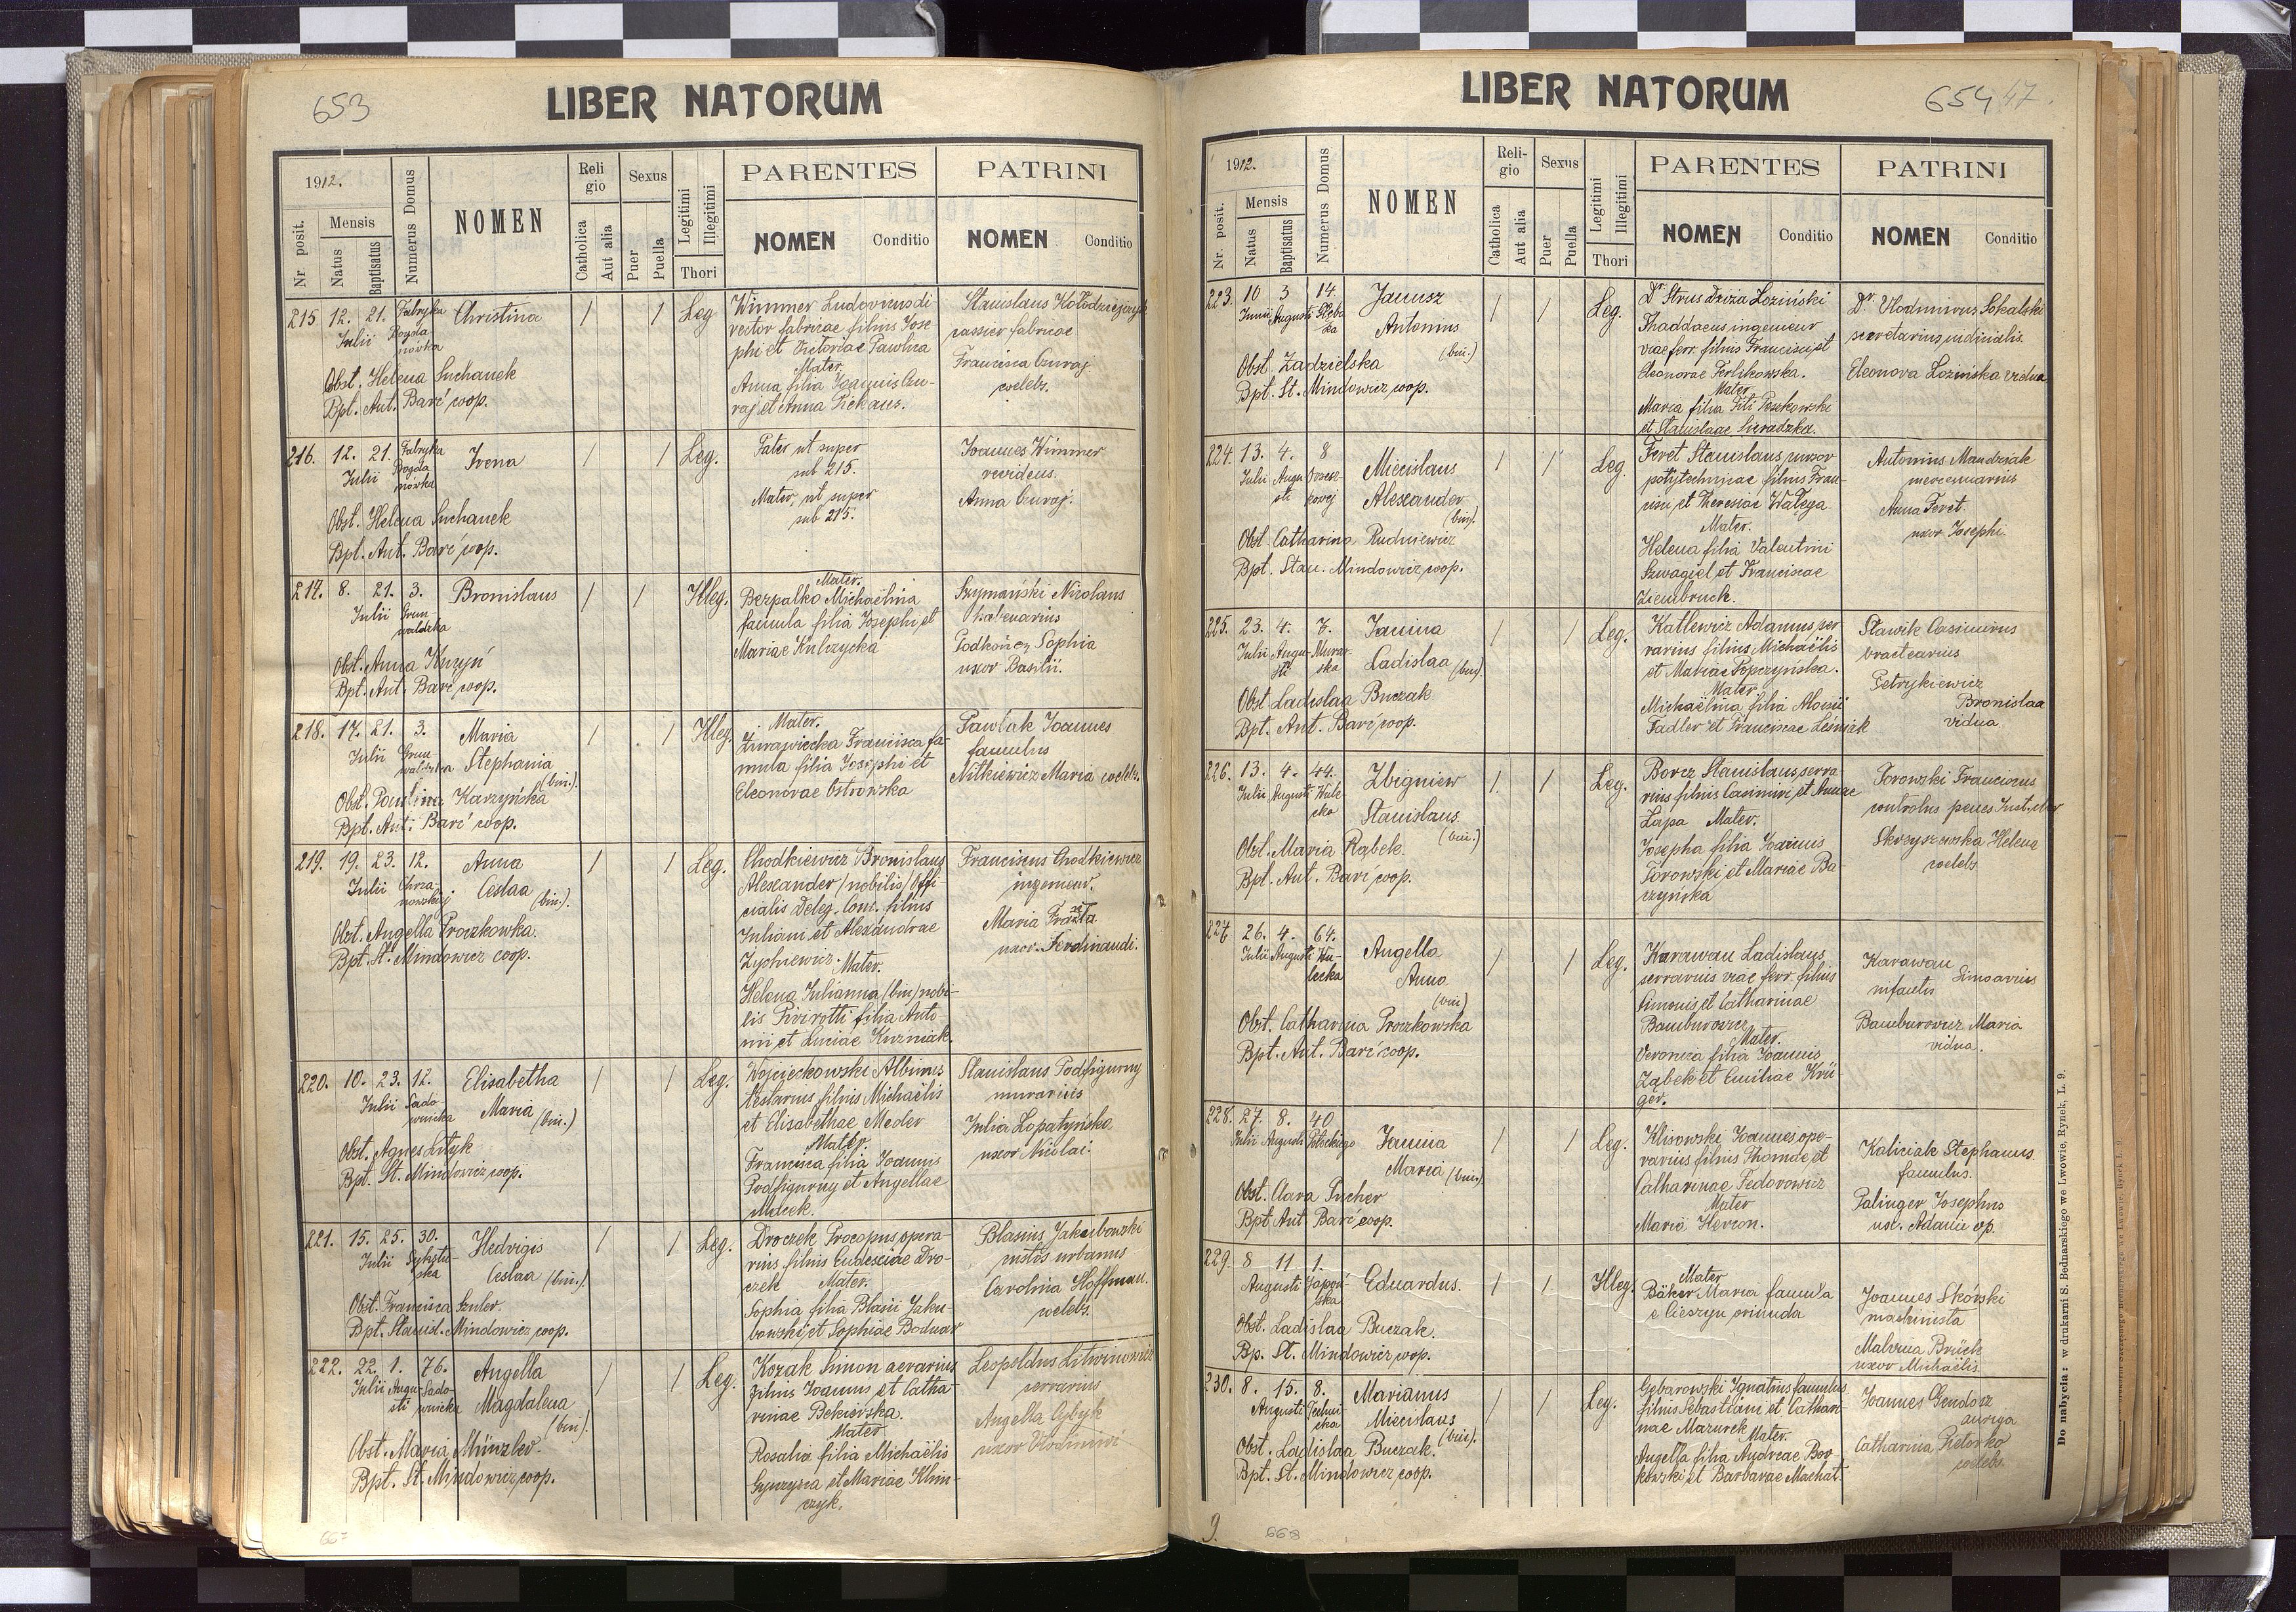 653
LIBER NATORUM
1912.
Nr. posit.
Mensis
Natus
Baptisatus
Numerus Domus
NOMEN
Religio
Catholica
Aut alia
Sexus
Puer
Puella
Legitimi
Illegitimi
Thori
PARENTES
NOMEN
Conditio
PATRINI
NOMEN
Conditio
215. 12. 21. Fabryka Christina 1 1 Leg
Julii Bogda
nówka
Obst. Helena Suchanek
Bpt. Ant. Barć coop.
Wimmer Ludovicus di
rector fabricae filius Jose
phi et Victoriae Pawlica
Mater
Anna filia Joannis Cu-
raj et Anna Piekarz.
Stanislaus Kołodziejczyk
cassier fabricae
Francisca Curaj
coelebs.
216. 12. 21. Fabryka Irena 1 1 Leg.
Julii Bogda
nówka
Obst. Helena Suchanek
Bpt. Ant. Barć coop.
Pater ut super
sub 215.
Mater, ut super
sub 215.
Joannes Wimmer
Anna Curaj.
217. 8. 21. 3. Bronislaus 1 1 Illeg.
Julii Grun
waldzka
Obst. Anna Kuzyń
Bpt. Ant. Barć coop.
Mater.
Bezpalko Michaëlina
famula filia Josephi et
Mariae Kulczycka
Szymański Nicolaus
Podkończ Sophia
uxor Basilii.
218. 17. 21. 3. Maria 1 1 Illeg.
Julii Grun
waldzka Stephania
(bin.).
Obst. Paulina Karzyńska
Bpt. Ant. Barć coop.
Mater.
Żurawiecka Francisca fa-
mula filia Josephi et
Eleonorae Ostrowska
Pawlak Joannes
famulus
Nitkiewicz Maria coelebs.
219. 19. 23. 12. Anna 1 1 Leg.
Julii Chrza
nowskiej Ceslaa (bin.).
Obst. Angella Proczkowka.
Bpt. St. Mindowicz coop.
Chodkiewicz Bronislaus
Alexander /nobilis/ Offi-
cialis Deleg. Com. filius
Juliani et Alexandrae
Zychiewicz. Mater.
Helena Julianna (bin) nobi-
lis Pivirotti filia Anto-
nii et Luciae Kuzniak.
Franciscus Chodkiewicz
ingenieur.
Maria
uxor Ferdinandi.
220. 10. 23. 12. Elisabetha 1 1 Leg.
Julii Sado-
wnicka Maria (bin.)
Obst. Agnes Lityk
Bpt. St. Mindowicz coop.
Wojciechowski Albinus
testarius filius Michaëlis
et Elisabethae Meder
Mater
Francisca filia Joannis
Podfigurny et Angellae
Stanislaus Podfigurny
murarius
Julia Łopatyńska
uxor Nicolai.
221. 15. 25. 30. Hedvigis 1 1 Leg.
Julii Sykstu-
ska Ceslaa (bin.).
Obst. Francisca Szuler.
Bpt. Stanisl. Mindowicz coop.
Droczek Procopus opera-
rius filius Eudesciae Dro-
czek Mater.
Sophia filia Blasii Jaku-
bowski et Sophiae Bodnar
Blasius Jakubowski
custos urbanus
Carolina Hoffman.
coelebs.
222. 22. 1. 76. Angella 1 1 Leg.
Julii Augu-
sti Sado-
wnicka Magdalena
(bin).
Obst. Maria Münzler.
Bpt. St. Mindowicz coop.
Kozak Simon aerarius
filius Joannis et Catha-
rinae Bekierska.
Mater
Rosalia filia Michaëlis
Gyrzycia et Mariae Klim-
czyk.
Leopoldus Litwinowicz
serrarius
Angella Cybyk
uxor Vlodimiri
654 47.
LIBER NATORUM
1912.
Nr. posit.
Mensis
Natus
Baptisatus
Numerus Domus
NOMEN
Religio
Catholica
Aut alia
Sexus
Puer
Puella
Legitimi
Illegitimi
Thori
PARENTES
NOMEN
Conditio
PATRINI
NOMEN
Conditio
223. 10 3 14 Janusz 1 1 Leg.
Junii Augusti Głębo
ka Antonius
(bin.)
Obst. Zadzielska
Bpt. St. Mindowicz coop.
Dr. Strus Droża Łoziński
Thaddaeus ingenieur
viae ferr. filius Francisci et
Eleonorae Terlikowska.
Mater
Maria filia Titi Peszkowski
et Stanislaae Sieradzka.
Dr. Vlodimirus Sokalski
secretarius judicialis.
Eleonora Łozińska vidua
224. 13. 4. 8 Miecislaus 1 1 Leg.
Julii Augu
sti Alexander
(bin).
Obst. Catharina Rudniewicz
Bpt. Stan. Mindowicz coop.
Feret Stanislaus,
polytechnicae filius Fran-
cisci et Theresiae Wałęga
Mater.
Helena filia Valentini
Szwagiel et Franciscae
Ziembruck.
Antonius Mandziak
mercenarius
Anna Feret.
uxor Josephi.
225. 23. 4. 7. Janina 1 1 Leg.
Julii Augu-
sti Murar-
ska Ladislaa (bin).
Obst. Ladislaa Buczak
Bpt. Ant. Barć coop.
Katlewicz Adamus ser
rarius filius Michaëlis
et Mariae Popczyńska.
Mater
Michaëlina filia Aloisii
Fadler et Franciscae Leśniak
Sławik Casimirus
bractearius
Petrykiewicz
Bronislaa
vidua
226. 13. 4. 44. Zbigniew 1. 1 Leg.
Julii Augusti Wule
cka Stanislaus.
(bin.)
Obst. Maria Rąbek.
Bpt. Ant. Barć coop.
Borcz Stanislaus, serra
rius filius Casimiri et Annae
Łapa Mater.
Josepha filia Joannis
Porowski et Mariae Ba-
czyńska
Porowski Franciscus
controlus penes Inst.
Skrzyszewska Helena
coelebs
227. 26. 4. 64. Angella 1 1 Leg.
Julii Augusti Wu-
lecka Anna
(bin)
Obst. Catharina Proczkowska
Bpt. Ant. Barć coop.
Karawan Ladislaus
serrarius viae ferr. filius
Simonis et Catharinae
Bamburowicz
Mater.
Veronica filia Joannis
Ząbek et Emiliae Krü-
ger.
Karawan
Bamburowicz Maria
vidua.
228. 27. 8. 40 Janina 1 1 Leg.
Julii Augusti Potockiego
Maria (bin)
Obst. Clara Pucher
Bpt Ant Barć coop.
Klisowski Joannes ope-
rarius filius Thomae et
Catharinae Fedorowicz
Mater
Maria Heron.
Kaliciak Stephanus.
famulus.
Palinger Josephus
ux. Adami op.
229. 8 11 1. Eduardus. 1 1 Illeg.
Augusti Japoń-
ska
Obst. Ladislaa Buczak.
Bp. St. Mindowicz coop.
Mater
Bäker Maria famula
e Cieszyn oriunda
Joannes Skórski
machinista
Malvina Brück
uxor Michaëlis.
230. 8. 15. 8. Marianus 1 1 Leg.
Augusti Techni
cka Miecislaus
(bin).
Obst. Ladislaa Buczak.
Bpt. St. Mindowicz coop.
Gębarowski Ignatius famulus
filius Sebastiani et Cathari
nae Mazurek Mater.
Angella filia Andreae Bor
kowski et Barbarae Machat.
Joannes Gendosz
auriga
Catharina Pietorko
coelebs.
Do nabycia: w drukarni S. Bednarskiego we Lwowie, Rynek, L. 9.
9.
668